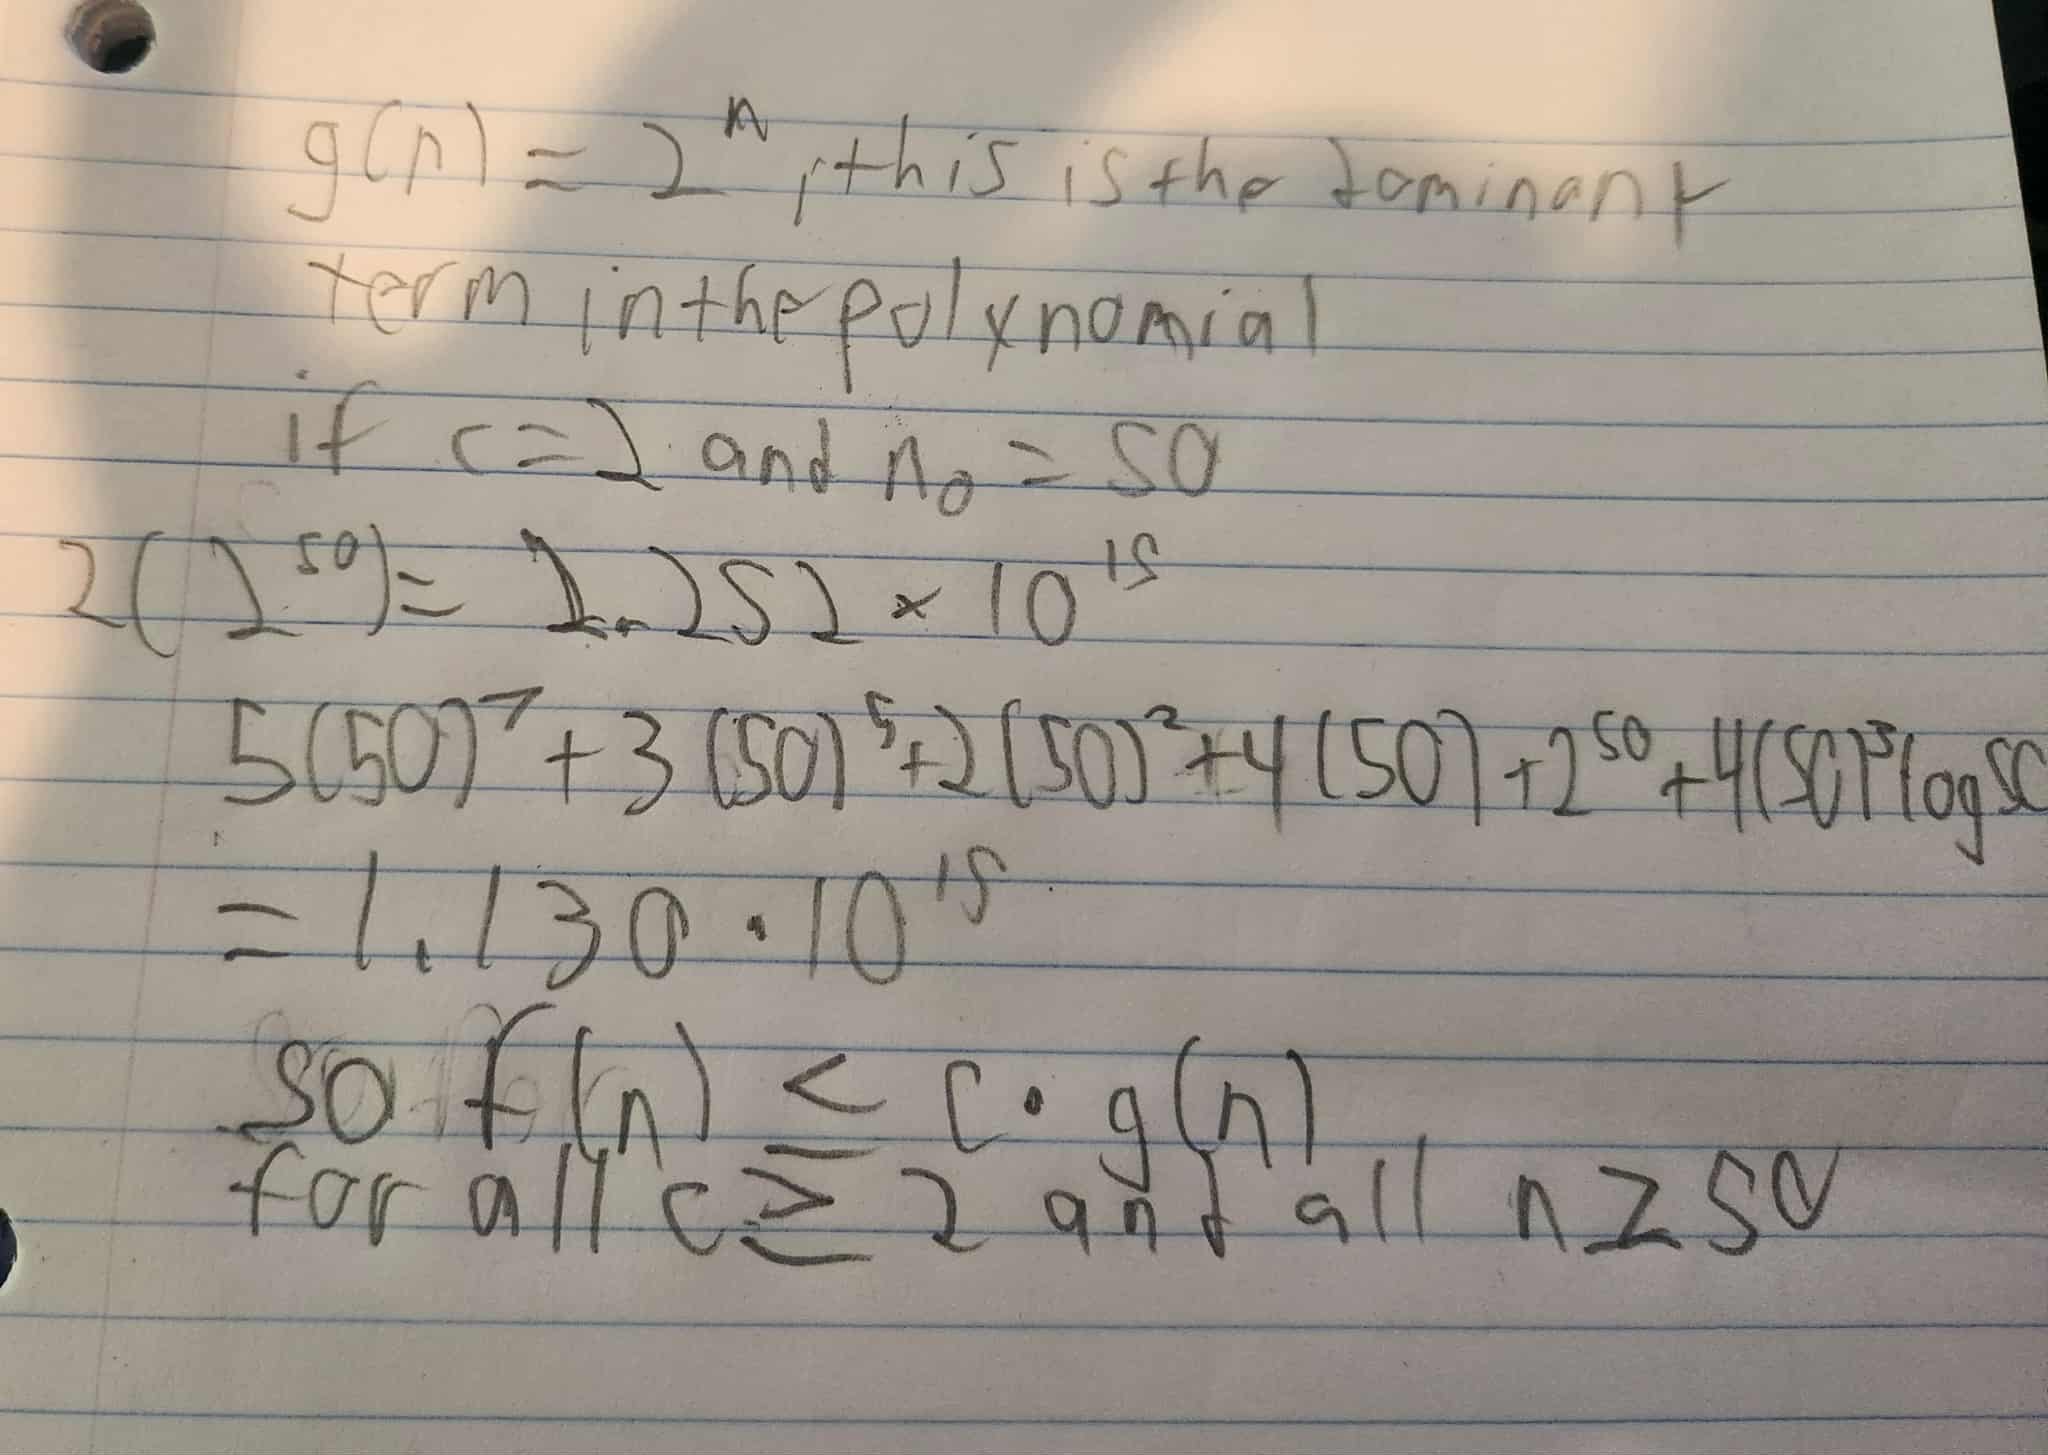 g(n) = 2ⁿ, this is the dominant
term in the polynomial
if c = 2 and n₀ = 50
2(2⁵⁰) = 2.252 × 10¹⁵
5(50)⁷ + 3(50)⁵ + 2(50)² + 4(50) + 2⁵⁰ + 4(50)³ log 50
= 1.130 · 10¹⁵
so f(n) ≤ c · g(n)
for all c ≥ 2 and all n ≥ 50